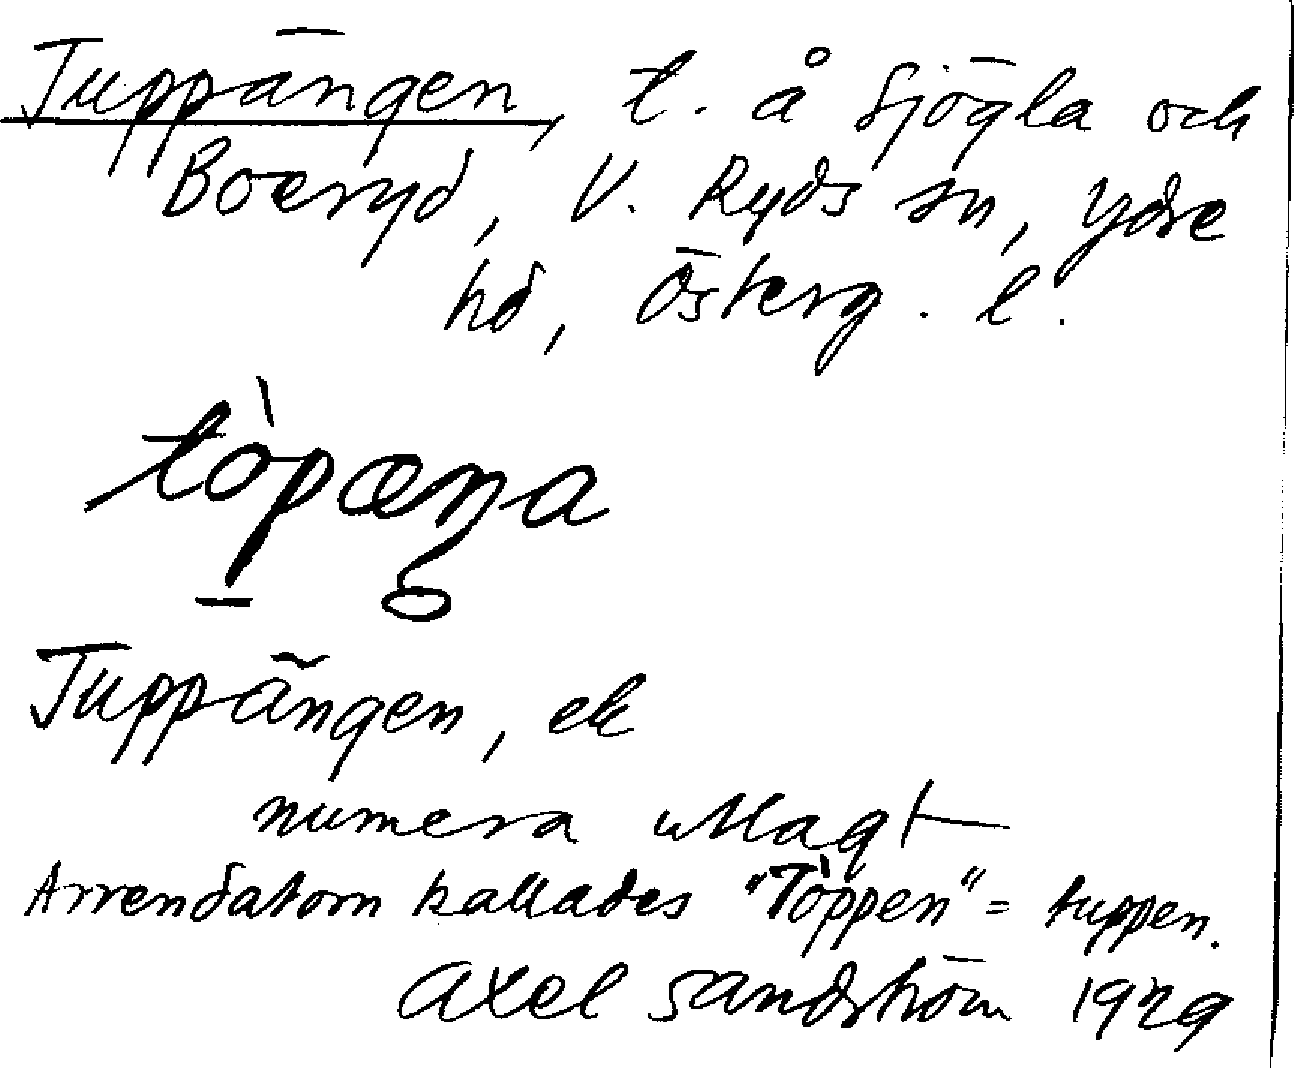 Tuppängen, t. å Sjögla och
Boeryd, V. Ryds sn, Ydre
hd, Österg. l.
tòpæŋa
Tuppängen, ek
numera utlagt
Arrendatorn kallades "Tòppen" = tuppen.
Axel Sandström 1929